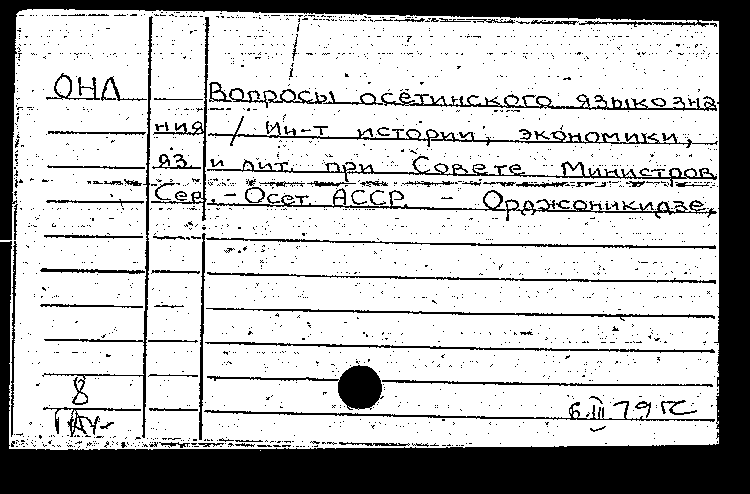 ОНЛ Вопросы осетинского языкозна
ния / Ин-т истории, экономики,
яз. и лит. при Совете Министров
Сев.-Осет. АССР. - Орджоникидзе,
8
6.III 79 г